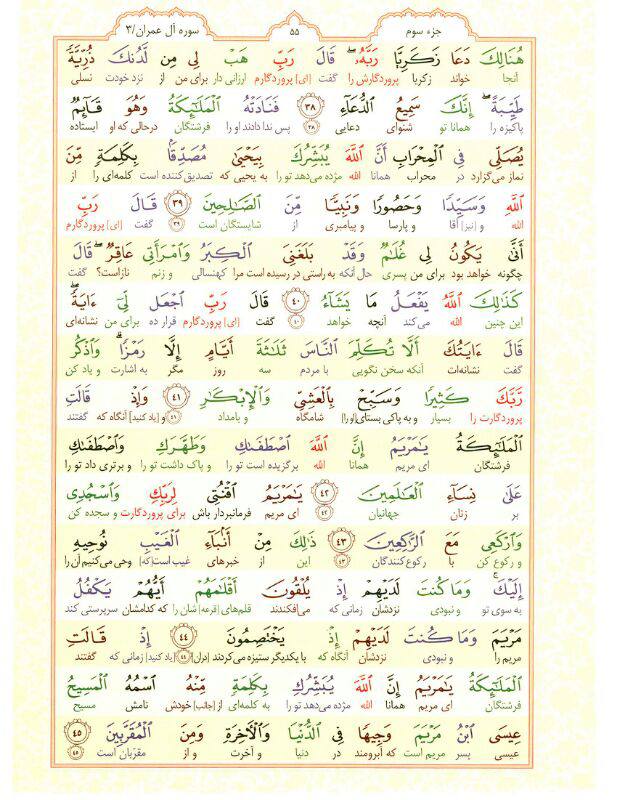 جزء سوم ۵۵ سوره آل عمران/۳
هُنَالِكَ دَعَا زَكَرِيَّا رَبَّهُۥ ۖ قَالَ رَبِّ هَبۡ لِي مِن لَّدُنكَ ذُرِّيَّةٗ
آنجا خواند زکریا پروردگارش را گفت [ای] پروردگارم ارزانی دار برای من از نزد خودت نسلی
طَيِّبَةًۖ إِنَّكَ سَمِيعُ ٱلدُّعَآءِ ۳۸ فَنَادَتۡهُ ٱلۡمَلَٰٓئِكَةُ وَهُوَ قَآئِمٞ
پاکیزه را همانا تو شنوای دعایی ۳۸ پس ندا دادند او را فرشتگان درحالی که او ایستاده
يُصَلِّي فِي ٱلۡمِحۡرَابِ أَنَّ ٱللَّهَ يُبَشِّرُكَ بِيَحۡيَىٰ مُصَدِّقَۢا بِكَلِمَةٖ مِّنَ
نماز می‌گزارد در محراب همانا الله مژده می‌دهد تو را به یحیی که تصدیق کننده است کلمه‌ای را از
ٱللَّهِ وَسَيِّدٗا وَحَصُورٗا وَنَبِيّٗا مِّنَ ٱلصَّٰلِحِينَ ۳۹ قَالَ رَبِّ
الله و [نیز] آقا و پارسا و پیامبری از شایستگان است ۳۹ گفت [ای] پروردگارم
أَنَّىٰ يَكُونُ لِي غُلَٰمٞ وَقَدۡ بَلَغَنِيَ ٱلۡكِبَرُ وَٱمۡرَأَتِي عَاقِرٞۖ قَالَ
چگونه خواهد بود برای من پسری حال آنکه به راستی در رسیده است مرا کهنسالی و زنم نازاست؟ گفت
كَذَٰلِكَ ٱللَّهُ يَفۡعَلُ مَا يَشَآءُ ۴۰ قَالَ رَبِّ ٱجۡعَل لِّيٓ ءَايَةٗۖ
این چنین الله می‌کند آنچه خواهد ۴۰ گفت [ای] پروردگارم قرار ده برای من نشانه‌ای
قَالَ ءَايَتُكَ أَلَّا تُكَلِّمَ ٱلنَّاسَ ثَلَٰثَةَ أَيَّامٍ إِلَّا رَمۡزٗاۗ وَٱذۡكُر
گفت نشانه‌ات آنکه سخن نگویی با مردم سه روز مگر به اشارت و یاد کن
رَّبَّكَ كَثِيرٗا وَسَبِّحۡ بِٱلۡعَشِيِّ وَٱلۡإِبۡكَٰرِ ۴۱ وَإِذۡ قَالَتِ
پروردگارت را بسیار و به پاکی بستای [او را] شامگاه و بامداد ۴۱ و [یاد کنید] آنگاه که گفتند
ٱلۡمَلَٰٓئِكَةُ يَٰمَرۡيَمُ إِنَّ ٱللَّهَ ٱصۡطَفَىٰكِ وَطَهَّرَكِ وَٱصۡطَفَىٰكِ
فرشتگان ای مریم همانا الله برگزیده است تو را و پاک داشت تو را و برتری داد تو را
عَلَىٰ نِسَآءِ ٱلۡعَٰلَمِينَ ۴۲ يَٰمَرۡيَمُ ٱقۡنُتِي لِرَبِّكِ وَٱسۡجُدِي
بر زنان جهانیان ۴۲ ای مریم فرمانبردار باش برای پروردگارت و سجده کن
وَٱرۡكَعِي مَعَ ٱلرَّٰكِعِينَ ۴۳ ذَٰلِكَ مِنۡ أَنۢبَآءِ ٱلۡغَيۡبِ نُوحِيهِ
و رکوع کن با رکوع‌کنندگان ۴۳ این از خبرهای غیب است [که] وحی می‌کنیم آن را
إِلَيۡكَۚ وَمَا كُنتَ لَدَيۡهِمۡ إِذۡ يُلۡقُونَ أَقۡلَٰمَهُمۡ أَيُّهُمۡ يَكۡفُلُ
به سوی تو و نبودی نزدشان زمانی که می‌افکندند قلم‌های [قرعه] شان را که کدامشان سرپرستی کند
مَرۡيَمَ وَمَا كُنتَ لَدَيۡهِمۡ إِذۡ يَخۡتَصِمُونَ ۴۴ إِذۡ قَالَتِ
مریم را و نبودی نزدشان آنگاه که با یکدیگر ستیزه می‌کردند [درآن] ۴۴ [یاد کنید] زمانی که گفتند
ٱلۡمَلَٰٓئِكَةُ يَٰمَرۡيَمُ إِنَّ ٱللَّهَ يُبَشِّرُكِ بِكَلِمَةٖ مِّنۡهُ ٱسۡمُهُ ٱلۡمَسِيحُ
فرشتگان ای مریم همانا الله مژده می‌دهد تو را به کلمه‌ای از [جانب] خودش نامش مسیح
عِيسَى ٱبۡنُ مَرۡيَمَ وَجِيهٗا فِي ٱلدُّنۡيَا وَٱلۡأٓخِرَةِ وَمِنَ ٱلۡمُقَرَّبِينَ ۴۵
عیسی پسر مریم است که آبرومند در دنیا و آخرت و از مقرّبان است ۴۵